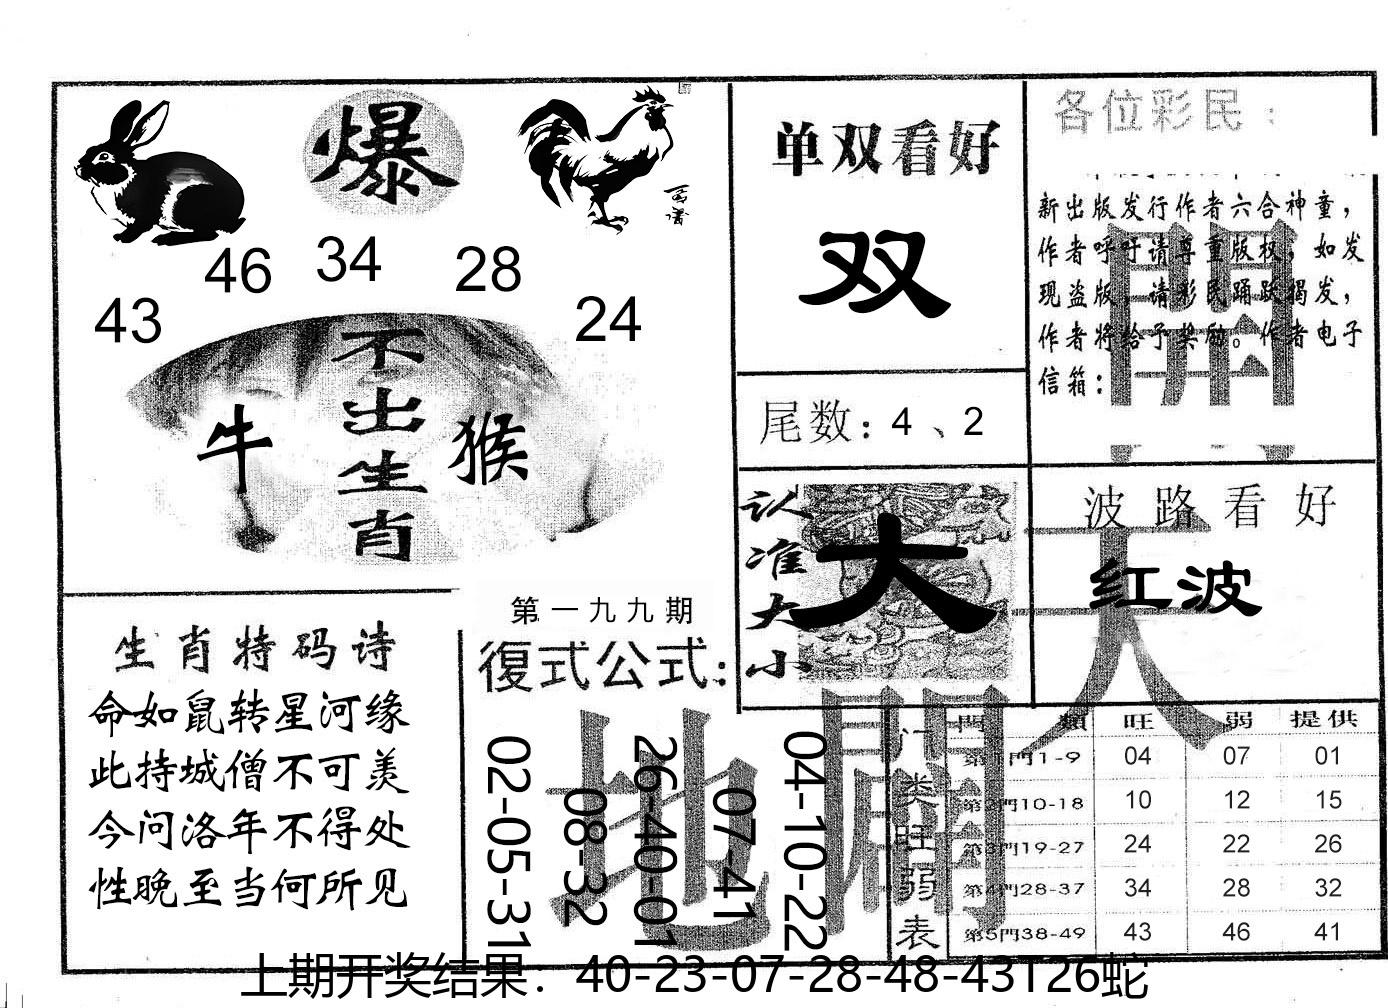 爆
46 34 28
43 24
不出生肖
牛 猴
生肖特码诗
命如鼠转星河缘
此持城僧不可羡
今问洛年不得处
性晚至当何所见
第一九九期
復式公式:
02-05-31
08-32
26-40-01
07-41
04-10-22
单双看好
双
尾数: 4 、2
认准大小
大
各位彩民:
新出版发行作者六合神童,
作者呼吁请尊重版权,如发
现盗版,请彩民踊跃揭发,
作者将给予奖励。作者电子
信箱:
波路看好
红波
天
地
門类旺弱表
門 類 旺 弱 提供
第1門1-9 04 07 01
第2門10-18 10 12 15
第3門19-27 24 22 26
第4門28-37 34 28 32
第5門38-49 43 46 41
上期开奖结果：40-23-07-28-48-43T26蛇